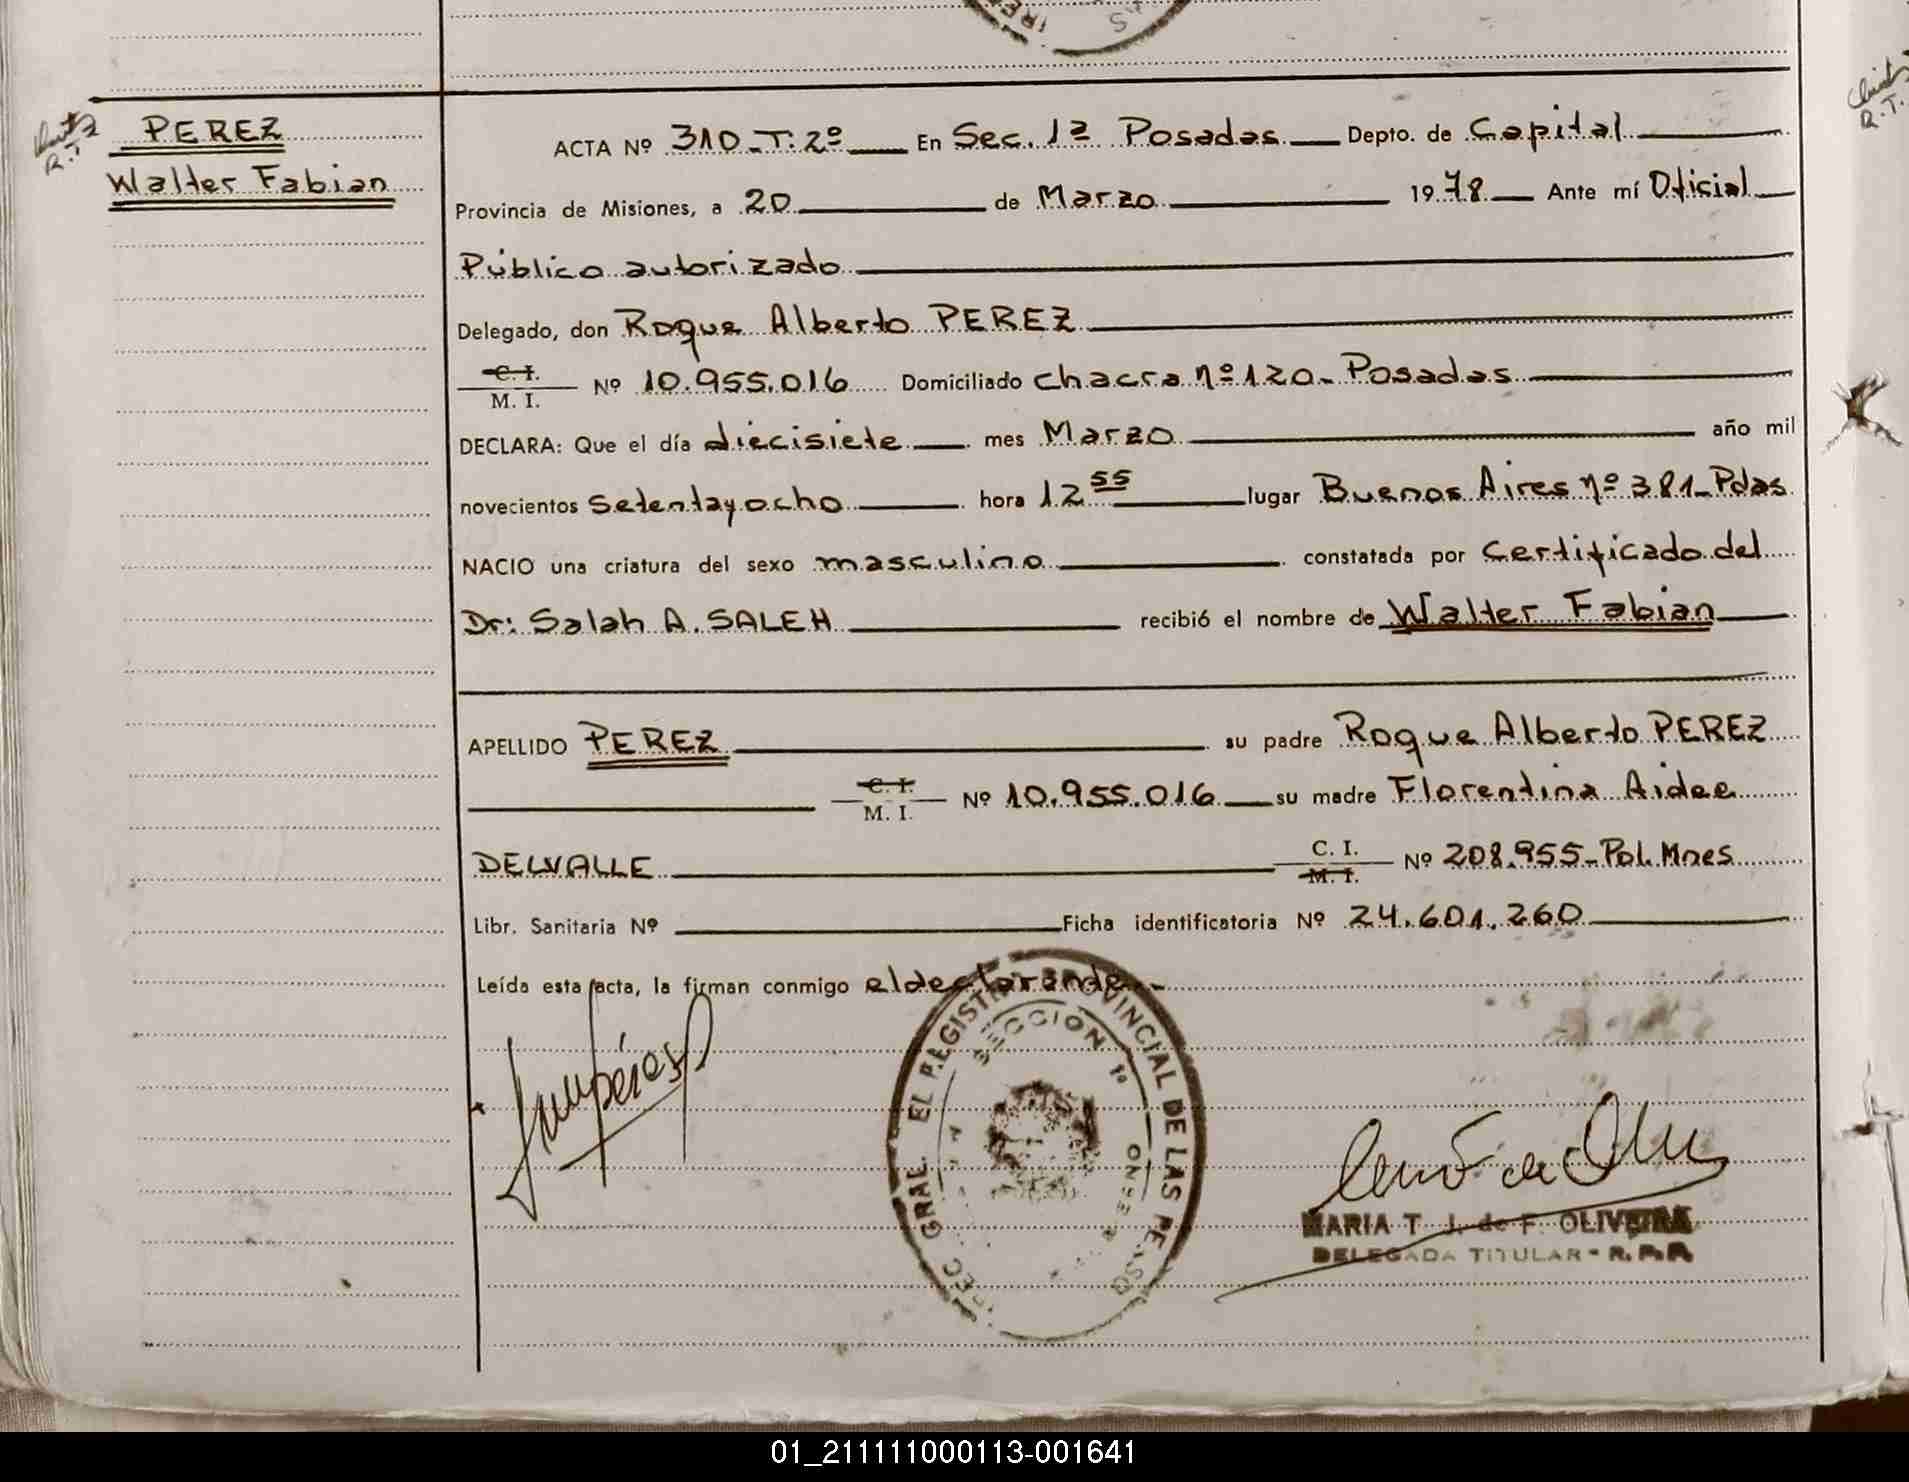 PEREZ
Walter Fabian
R.T.
ACTA Nº 310_T:2º En Sec. 1ª Posadas Depto. de Capital
Provincia de Misiones, a 20 de Marzo 1978 Ante mí Oficial
Público autorizado
Delegado, don Roque Alberto PEREZ
C. I.
M. I. Nº 10.955.016 Domiciliado chacra nº 120_ Posadas
DECLARA: Que el día diecisiete mes Marzo año mil
novecientos setentayocho hora 12 55 lugar Buenos Aires nº 381_Pdas
NACIO una criatura del sexo masculino constatada por Certificado del
Dr: Salah A. SALEH recibió el nombre de Walter Fabian
APELLIDO PEREZ su padre Roque Alberto PEREZ
C. I.
M. I. Nº 10.955.016 su madre Florentina Aidee
DELVALLE C. I.
M. I. Nº 208.955_Pol. Mnes
Libr. Sanitaria Nº Ficha identificatoria Nº 24.601.260
Leída esta acta, la firman conmigo el declarante_
GRAL. EL REGISTRO PROVINCIAL DE LAS PERSO
SECCION 1ª
MARIA T. J. de F. OLIVEIRA
DELEGADA TITULAR - R. P. P.
R.T.
01_211111000113-001641